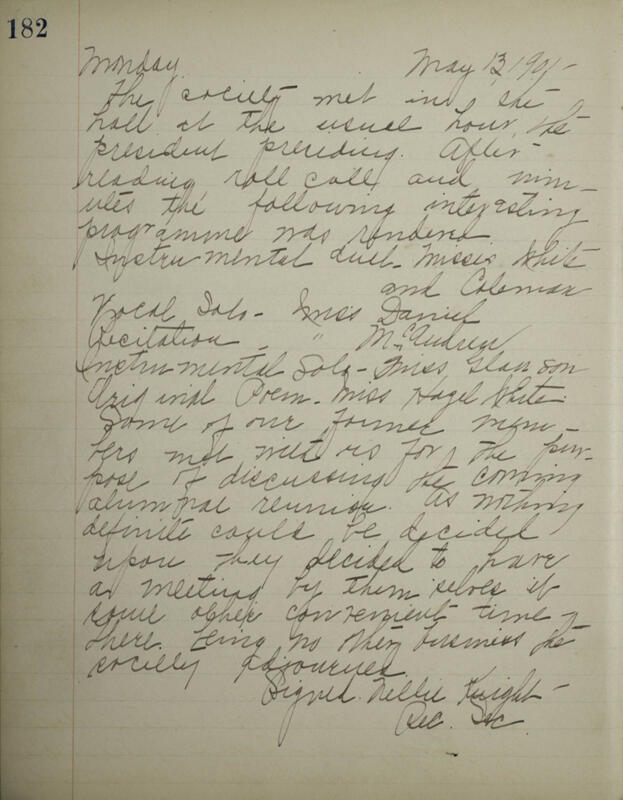 182
Monday. May 13, 190
The society met in the
hall at the usual hour, the
president presiding. After
reading roll call and min-
utes the following interesting
programme was rendered
Instrumental duet - Misses White
and Coleman
Vocal Solo - Miss Daniel
Recitation " McAndrew
Instrumental Solo - Miss
Original Poem - Miss Hazel White.
Some of our former mem-
bers met with us for the pur-
pose of discussing the coming
alumnae reunion. As nothing
definite could be decided
upon they decided to have
a meeting by themselves at
some other convenient time
there being no other business the
society adjourned.
Signed. Nellie Knight -
Rec. Sec